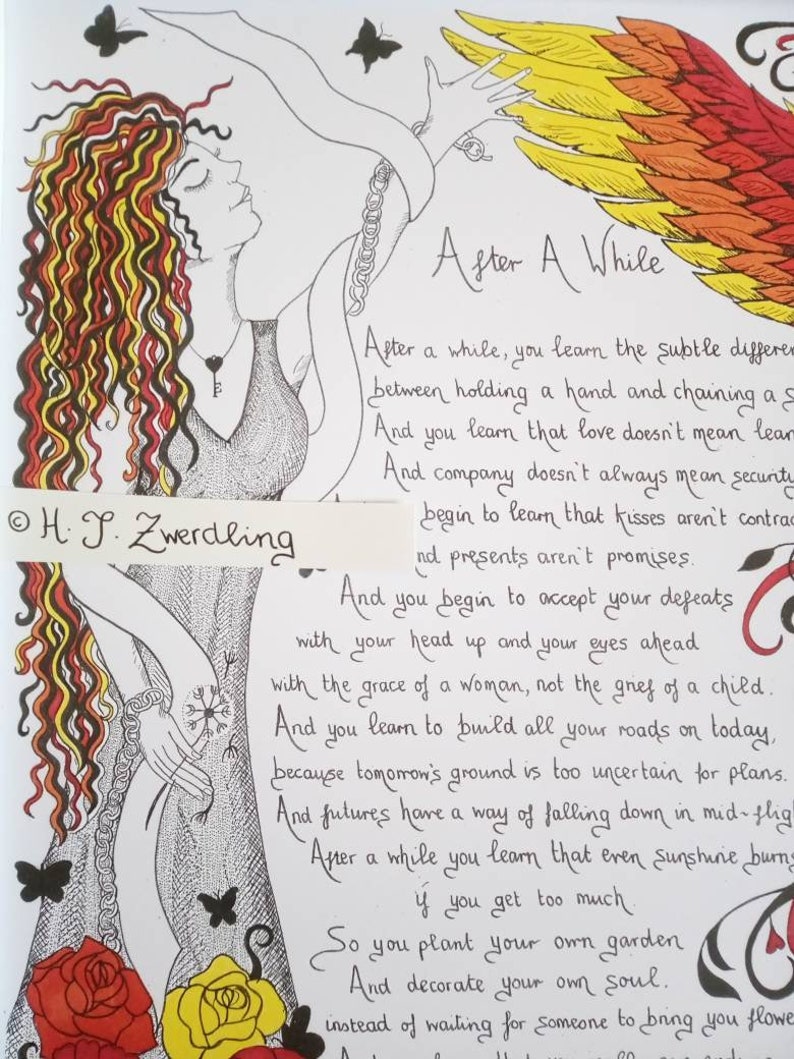 After A While
After a while, you learn the subtle differen
between holding a hand and chaining a s
And you learn that love doesn't mean lean
And company doesn't always mean security
begin to learn that kisses aren't contrac
nd presents aren't promises.
© H. J. Zwerdling
And you begin to accept your defeats
with your head up and your eyes ahead
with the grace of a woman, not the grief of a child.
And you learn to build all your roads on today,
because tomorrow's ground is too uncertain for plans.
And futures have a way of falling down in mid-fligh
After a while you learn that even sunshine burns
if you get too much.
So you plant your own garden
And decorate your own soul.
instead of waiting for someone to bring you flowe